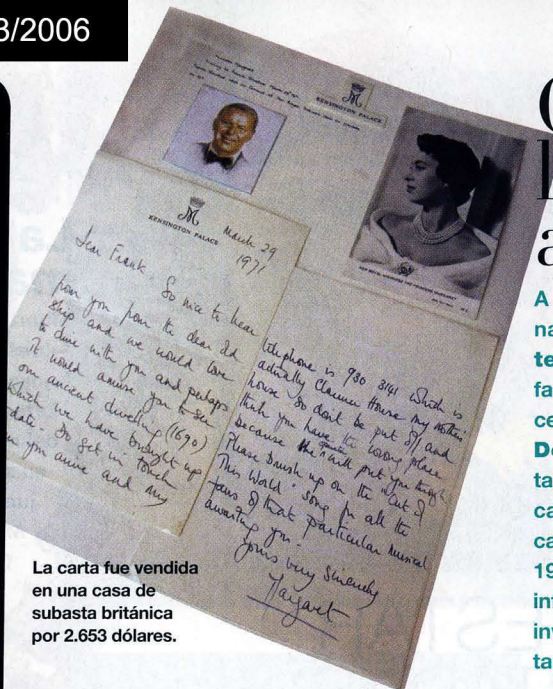 3/2006
KENSINGTON PALACE
KENSINGTON PALACE
March 29
1971
Dear Frank. So nice to hear
from you from the dear old
ship and we would love
to dine with you and perhaps
it would amuse you to see
our ancient dwelling (1690)
which we have brought up
date. Do get in touch
you arrive and my
telephone is 930 3141 which is
actually Clarence House my mother's
house so don't be put off and
think you have the wrong place
because will put you through
Please brush up on the "Out of
This World" song for all the
fans of that particular musical
awaiting you.
Yours very sincerely
Margaret
La carta fue vendida
en una casa de
subasta británica
por 2.653 dólares.
A
na
te
fa
ce
De
ta
ca
ca
19
int
inv
ta